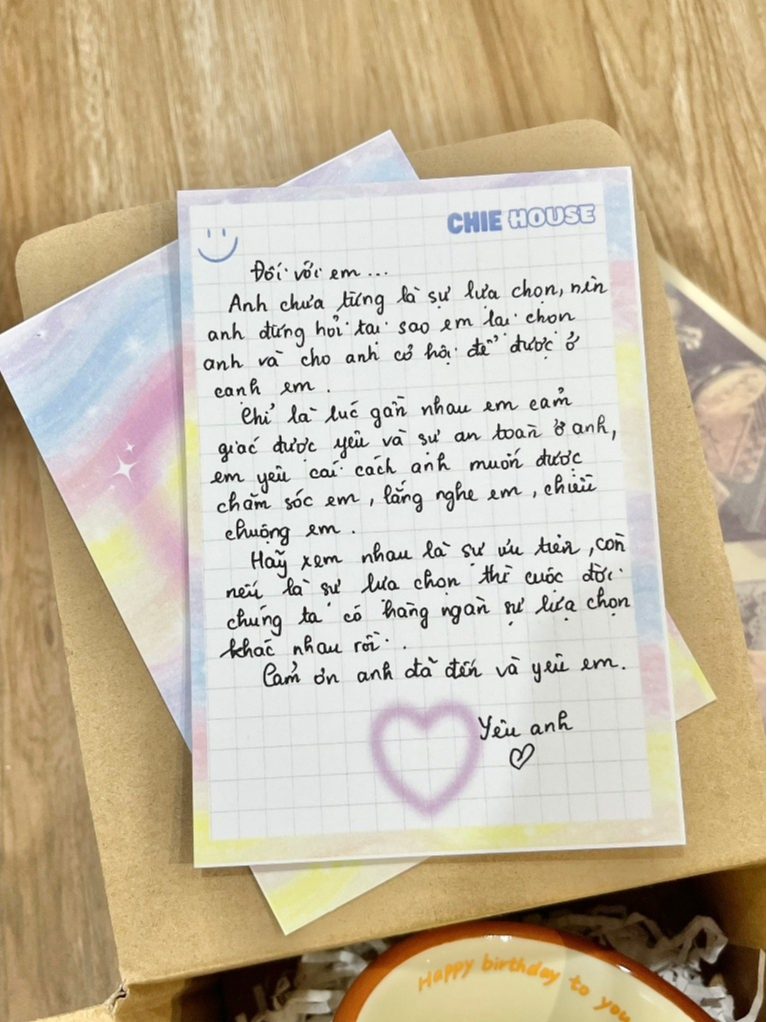 CHIE HOUSE
Đối với em...
Anh chưa từng là sự lựa chọn, nên
anh đừng hỏi tại sao em lại chọn
anh và cho anh cơ hội để được ở
cạnh em.
Chỉ là lúc gần nhau em cảm
giác được yêu và sự an toàn ở anh,
em yêu cái cách anh muốn được
chăm sóc em, lắng nghe em, chiều
chuộng em.
Hãy xem nhau là sự ưu tiên, còn
nếu là sự lựa chọn thì cuộc đời
chúng ta có hàng ngàn sự lựa chọn
khác nhau rồi.
Cảm ơn anh đã đến và yêu em.
Yêu anh
Happy birthday to you